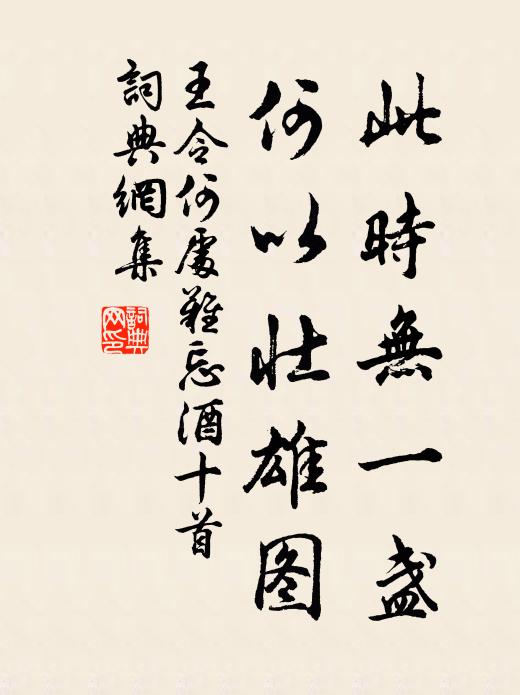 此時無一盏
何以壮雄图
王令何處難忘酒十首
詞典網集
詞典
网印